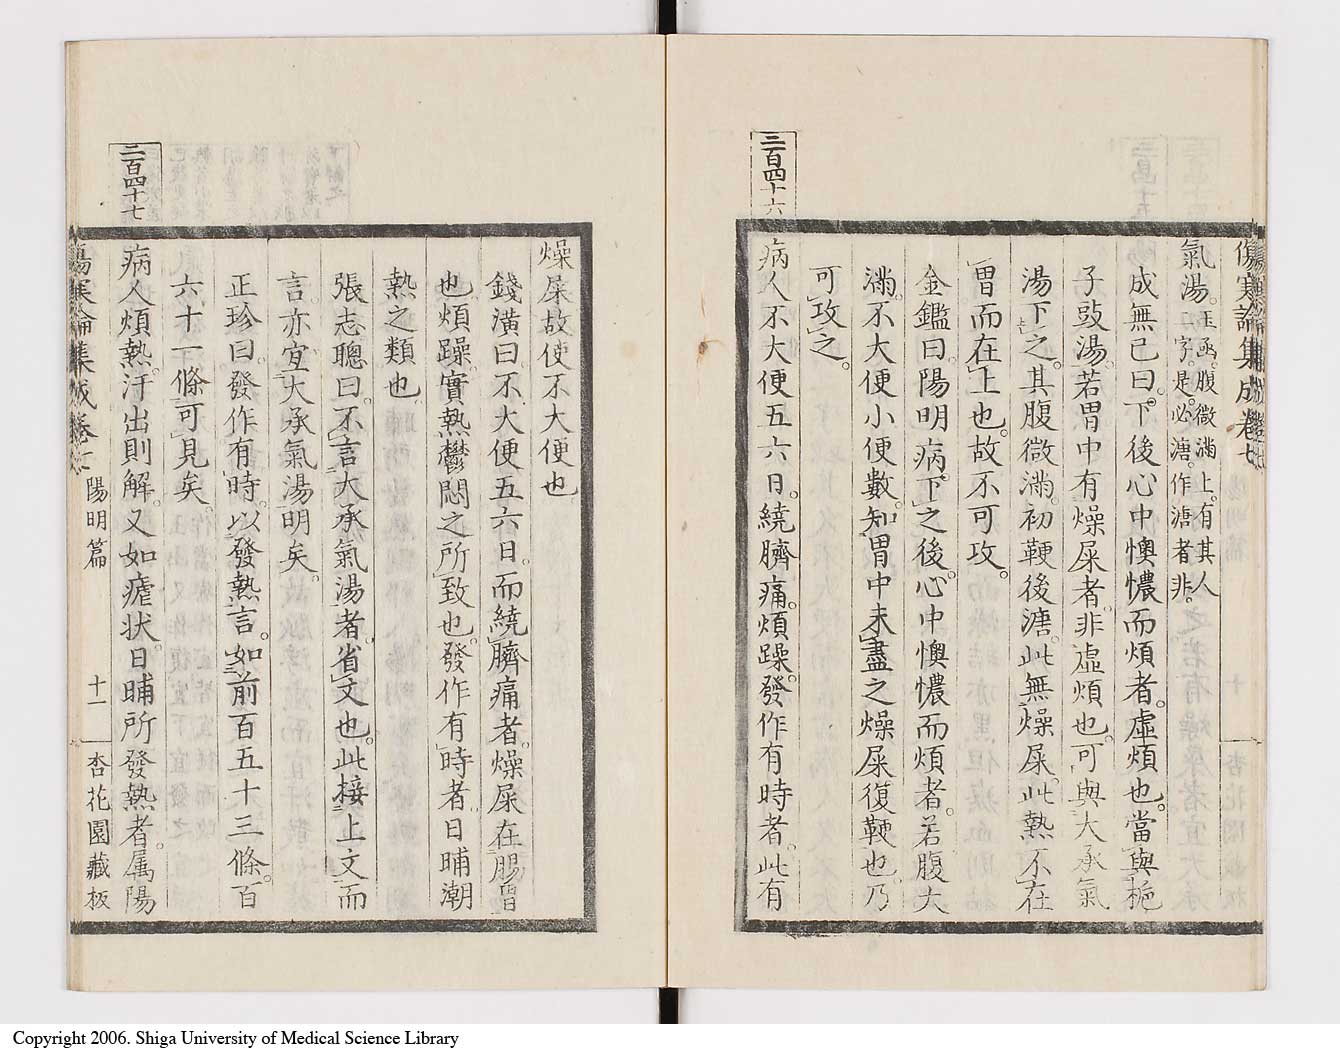 傷寒論集成卷七
十
杏花園藏板
氣湯。玉函。腹微滿上。有其人
二字。是。必溏。作溏者非。
成無己曰。下後心中懊憹而煩者。虛煩也。當與梔
子豉湯。若胃中有燥屎者。非虛煩也。可與大承氣
湯下之。其腹微滿。初鞕後溏。此無燥屎。此熱不在
胃而在上也。故不可攻。
金鑑曰。陽明病。下之後。心中懊憹而煩者。若腹大
滿。不大便小便數。知胃中未盡之燥屎復鞕也。乃
可攻之。
二百四十六
病人不大便五六日。繞臍痛。煩躁。發作有時者。此有
燥屎。故使不大便也。
錢潢曰。不大便五六日。而繞臍痛者。燥屎在腸胃
也。煩躁。實熱鬱悶之所致也。發作有時者。日晡潮
熱之類也。
張志聰曰。不言大承氣湯者。省文也。此接上文而
言。亦宜大承氣湯明矣。
正珍曰。發作有時。以發熱言。如前百五十三條。百
六十一條可見矣。
二百四十七
病人煩熱。汗出則解。又如瘧狀。日晡所發熱者。属陽
傷寒論集成卷七
陽明篇
十一
杏花園藏板
Copyright 2006. Shiga University of Medical Science Library